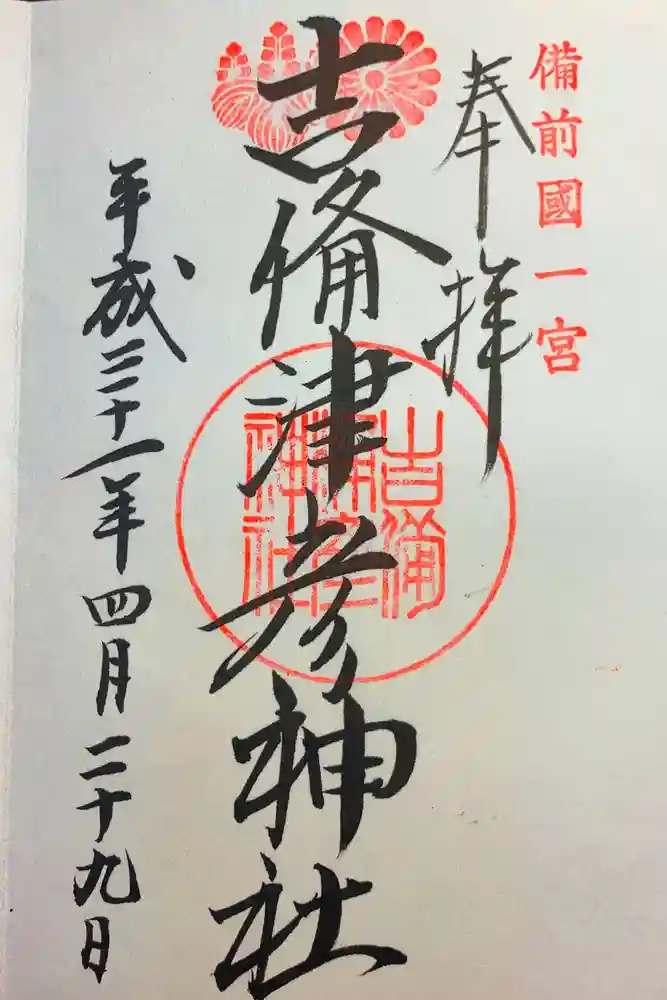 備前國一宮
奉拝
吉備津彦神社
吉備津彦神社
平成三十一年四月二十九日